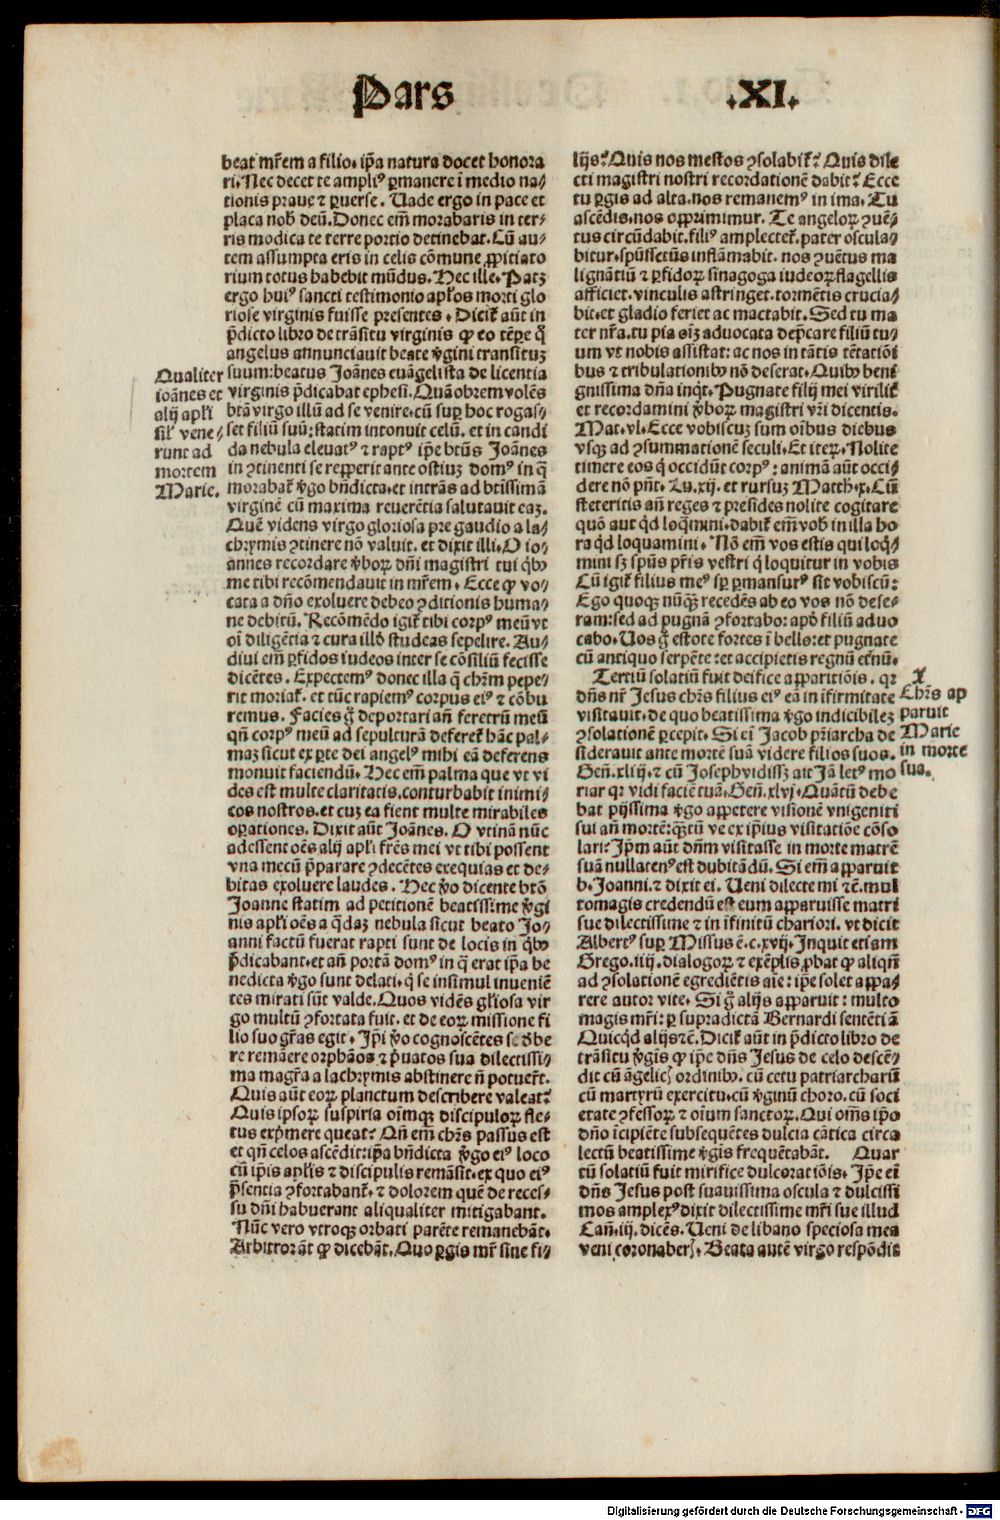 Pars .XI.
beat mr̃em a filio. ip̃a natura docet honora
ri. Nec decet te ampliꝰ ꝑmanere ĩ medio na/
tionis praue ⁊ ꝑuerse. Uade ergo in pace et
placa nob̃ deũ. Donec em̃ morabaris in ter/
ris modica te terre portio detinebat. Cũ au/
tem assumpta eris in celis cõmune ꝓpitiato
rium totus habebit mũdus. Hec ille. Patꝫ
ergo huiꝰ sancti testimonio apl'os morti glo
riose virginis fuisse presentes. Dicit̃ aũt in
p̃dicto libro de trãsitu virginis ꝙ eo tẽpe q̃
angelus annunciauit beate v̓gini transituꝫ
suum: beatus Joãnes euãgelista de licentia
virginis p̃dicabat ephesi. Quã obrem volẽs
btã virgo illũ ad se venire. cũ suꝑ hoc rogas/
set filiũ suũ: statim intonuit celũ. et in candi
da nebula eleuatꝰ ⁊ raptꝰ ip̃e btũs Joãnes
in ꝯtinenti se repperit ante ostiuꝫ domꝰ in q̃
morabat̃ v̓go bñdicta. et intrãs ad btissimã
virginẽ cũ maxima reuerẽtia salutauit eaꝫ.
Quẽ videns virgo gloriosa pre gaudio a la/
chrymis ꝯtinere nõ valuit. et dixit illi. O io/
annes recordare v̓boꝝ dñi magistri tui q̃bꝰ
me tibi recõmendauit in mr̃em. Ecce ꝙ vo/
cata a dño exoluere debeo ꝯditionis huma/
ne debitũ. Recõmẽdo igit̃ tibi corpꝰ meũ vt
oĩ diligẽtia ⁊ cura illð studeas sepelire. Au/
diui em̃ ꝑfidos iudeos inter se cõsiliũ fecisse
dicẽtes. Expectemꝰ donec illa q̃ chr̃m pepe/
rit moriat̃. et tũc rapiemꝰ corpus eiꝰ ⁊ cõbu
remus. Facies g̃ deportari añ feretrũ meũ
qñ corpꝰ meũ ad sepulturã deferet̃ hãc pal/
maꝫ sicut ex ꝑte dei angelꝰ mihi eã deferens
monuit faciendũ. Hec em̃ palma que vt vi
des est multe claritatis. conturbabit inimi/
cos nostros. et cuꝫ ea fient multe mirabiles
oꝑationes. Dixit aũt Joãnes. O vtinã nũc
adessent oẽs alij apl'i fr̃es mei vt tibi possent
vna mecũ p̃parare ꝯdecẽtes exequias et de/
bitas exoluere laudes. Hec v̓o dicente btõ
Joanne statim ad petitionẽ beatissime v̓gi
nis apl'i oẽs a q̃daꝫ nebula sicut beato Jo/
anni factũ fuerat rapti sunt de locis in q̃bꝰ
p̃dicabant. et añ portã domꝰ in q̃ erat ip̃a be
nedicta v̓go sunt delati. q̃ se insimul inueniẽ
tes mirati sũt valde. Quos vidẽs gl'iosa vir
go multũ ꝯfortata fuit. et de eoꝝ missione fi
lio suo gr̃as egit. Jp̃i v̓o cognoscẽtes se ðbe
re remãere orphãos ⁊ p̃uatos sua dilectissi/
ma magr̃a a lachrymis abstinere ñ potuer̃t.
Quis aũt eoꝝ planctum describere valeat?
Quis ipsoꝝ suspiria oĩmqꝫ discipuloꝝ fle/
tus exp̃mere queat? Qñ em̃ chr̃s passus est
et qñ celos ascẽdit: ip̃a bñdicta v̓go eiꝰ loco
cũ ip̃is apl'is ⁊ discipulis remãsit. ex quo eiꝰ
p̃sentia ꝯfortabant̃. ⁊ dolorem quẽ de reces/
su dñi habuerant aliqualiter mitigabant.
Nũc vero vtroqꝫ orbati parẽte remanebãt.
Arbitror ãt ꝙ dicebãt. Quo ꝑgis mr̃ sine fi/
Qualiter
ioãnes et
alij apl'i
sil' vene/
runt ad
mortem
Marie.
lijs? Quis nos mestos ꝯsolabit̃? Quis dile
cti magistri nostri recordationẽ dabit? Ecce
tu ꝑgis ad alta. nos remanemꝰ in ima. Tu
ascẽdis. nos opprimimur. Te angeloꝝ ꝯuẽ/
tus circũdabit. filiꝰ amplectet̃. pater oscula/
bitur. spũssctũs inflãmabit. nos ꝯuẽtus ma
lignãtiũ ⁊ ꝑfidoꝝ sinagoga iudeoꝝ flagellis
afficiet. vinculis astringet. tormẽtis crucia/
bit. et gladio feriet ac mactabit. Sed tu ma
ter nr̃a. tu pia sis aduocata dep̃care filiũ tu/
um vt nobis assistat: ac nos in tãtis tẽtatiõi
bus ⁊ tribulationibꝰ nõ deserat. Quibꝰ beni
gnissima dña inq̃t. Pugnate filij mei virilit̃
et recordamini v̓boꝝ magistri vr̃i dicentis.
Mat. vl. Ecce vobiscuꝫ sum oĩbus diebus
vsqꝫ ad ꝯsummationẽ seculi. Et iteꝝ. Nolite
timere eos q̃ occidũt corpꝰ: animã aũt occi/
dere nõ pñt. Lu. xij. et rursuꝫ Matth. x. Cũ
steteritis añ reges ⁊ presides nolite cogitare
quõ aut q̃d loq̃mini. dabit̃ em̃ vob̃ in illa ho
ra q̃d loquamini. Nõ em̃ vos estis qui loq̃/
mini sꝫ spũs pr̃is vestri q̃ loquitur in vobis
Cũ igit̃ filius meꝰ sꝑ ꝑmansurꝰ sit vobiscũ:
Ego quoqꝫ nũqꝫ recedẽs ab eo vos nõ dese/
ram: sed ad pugnã ꝯfortabo: apð filiũ aduo
cabo. Uos g̃ estote fortes ĩ bello: et pugnate
cũ antiquo serpẽte: et accipietis regnũ et̃nũ.
Tertiũ solatiũ fuit deifice apparitiõis. qꝛ
dñs nr̃ Jesus chr̃s filius eiꝰ eã in ĩfirmitate
visitauit. de quo beatissima v̓go indicibileꝫ
ꝯsolationẽ ꝑcepit. Si eĩ Jacob pr̃iarcha de
siderauit ante mortẽ suã videre filios suos.
Geñ. xliij. ⁊ cũ Joseph vidissꝫ ait Jã letꝰ mo
riar qꝛ vidi faciẽ tuã. Geñ. xlvj. Quãtũ debe
bat pijssima v̓go appetere visionẽ vnigeniti
sui añ mortẽ: qꝫtũ ve ex ip̃ius visitatiõe cõso
lari? Jp̃m aũt dñm visitasse in morte matrẽ
suã nullatenꝰ est dubitãdũ. Si em̃ apparuit
b. Joanni. ⁊ dixit ei. Ueni dilecte mi ⁊c̃. mul
tomagis credendũ est eum apparuisse matri
sue dilectissime ⁊ in ĩfinitũ chariori. vt dicit
Albertꝰ suꝑ Missus ẽ. c. xvij. Inquit etiam
Grego. iiij. dialogoꝝ ⁊ exẽplis ꝓbat ꝙ aliqñ
ad ꝯsolationẽ egrediẽtis aĩe: ip̃e solet appa/
rere autor vite. Si g̃ alijs apparuit: multo
magis mr̃i: ꝑ supradictã Bernardi sentẽtiã
Quicq̃d alijs ⁊c̃. Dicit̃ aũt in p̃dicto libro de
trãsitu v̓gis ꝙ ip̃e dñs Jesus de celo descẽ/
dit cũ ãgelic̃ ordinibꝰ. cũ cetu patriarcharũ
cũ martyrũ exercitu. cũ v̓ginũ choro. cũ soci
etate ꝯfessoꝝ ⁊ oĩum sanctoꝝ. Qui oẽs ip̃o
dño ĩcipiẽte subsequẽtes dulcia cãtica circa
lectũ beatissime v̓gĩs frequẽtabãt. Quar
tũ solatiũ fuit mirifice dulcoratiõis. Jp̃e eĩ
dñs Jesus post suauissima oscula ⁊ dulcissi
mos amplexꝰ dixit dilectissime mr̃i sue illud
Cañ. iiij. dicẽs. Ueni de libano speciosa mea
veni coronaber̃. Beata autẽ virgo respõdis
X
Chr̃s ap
paruit
Marie
in morte
sua.
Digitalisierung gefördert durch die Deutsche Forschungsgemeinschaft - DFG